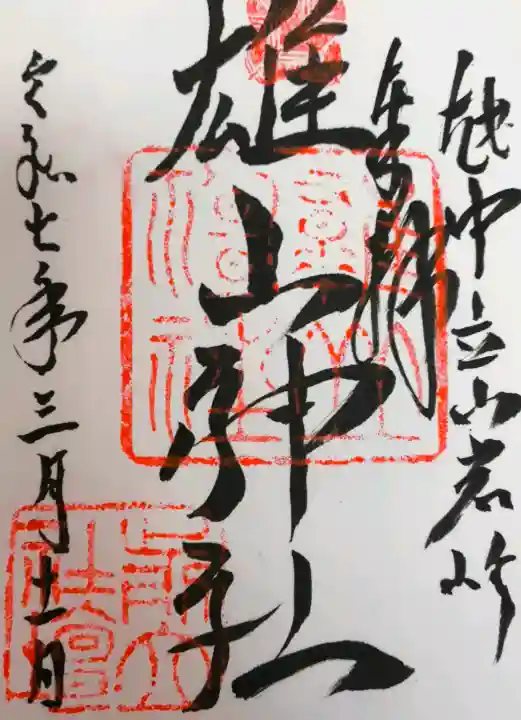 越中立山岩峅
奉拝
雄山神社
令和七年三月十一日
前立
社壇